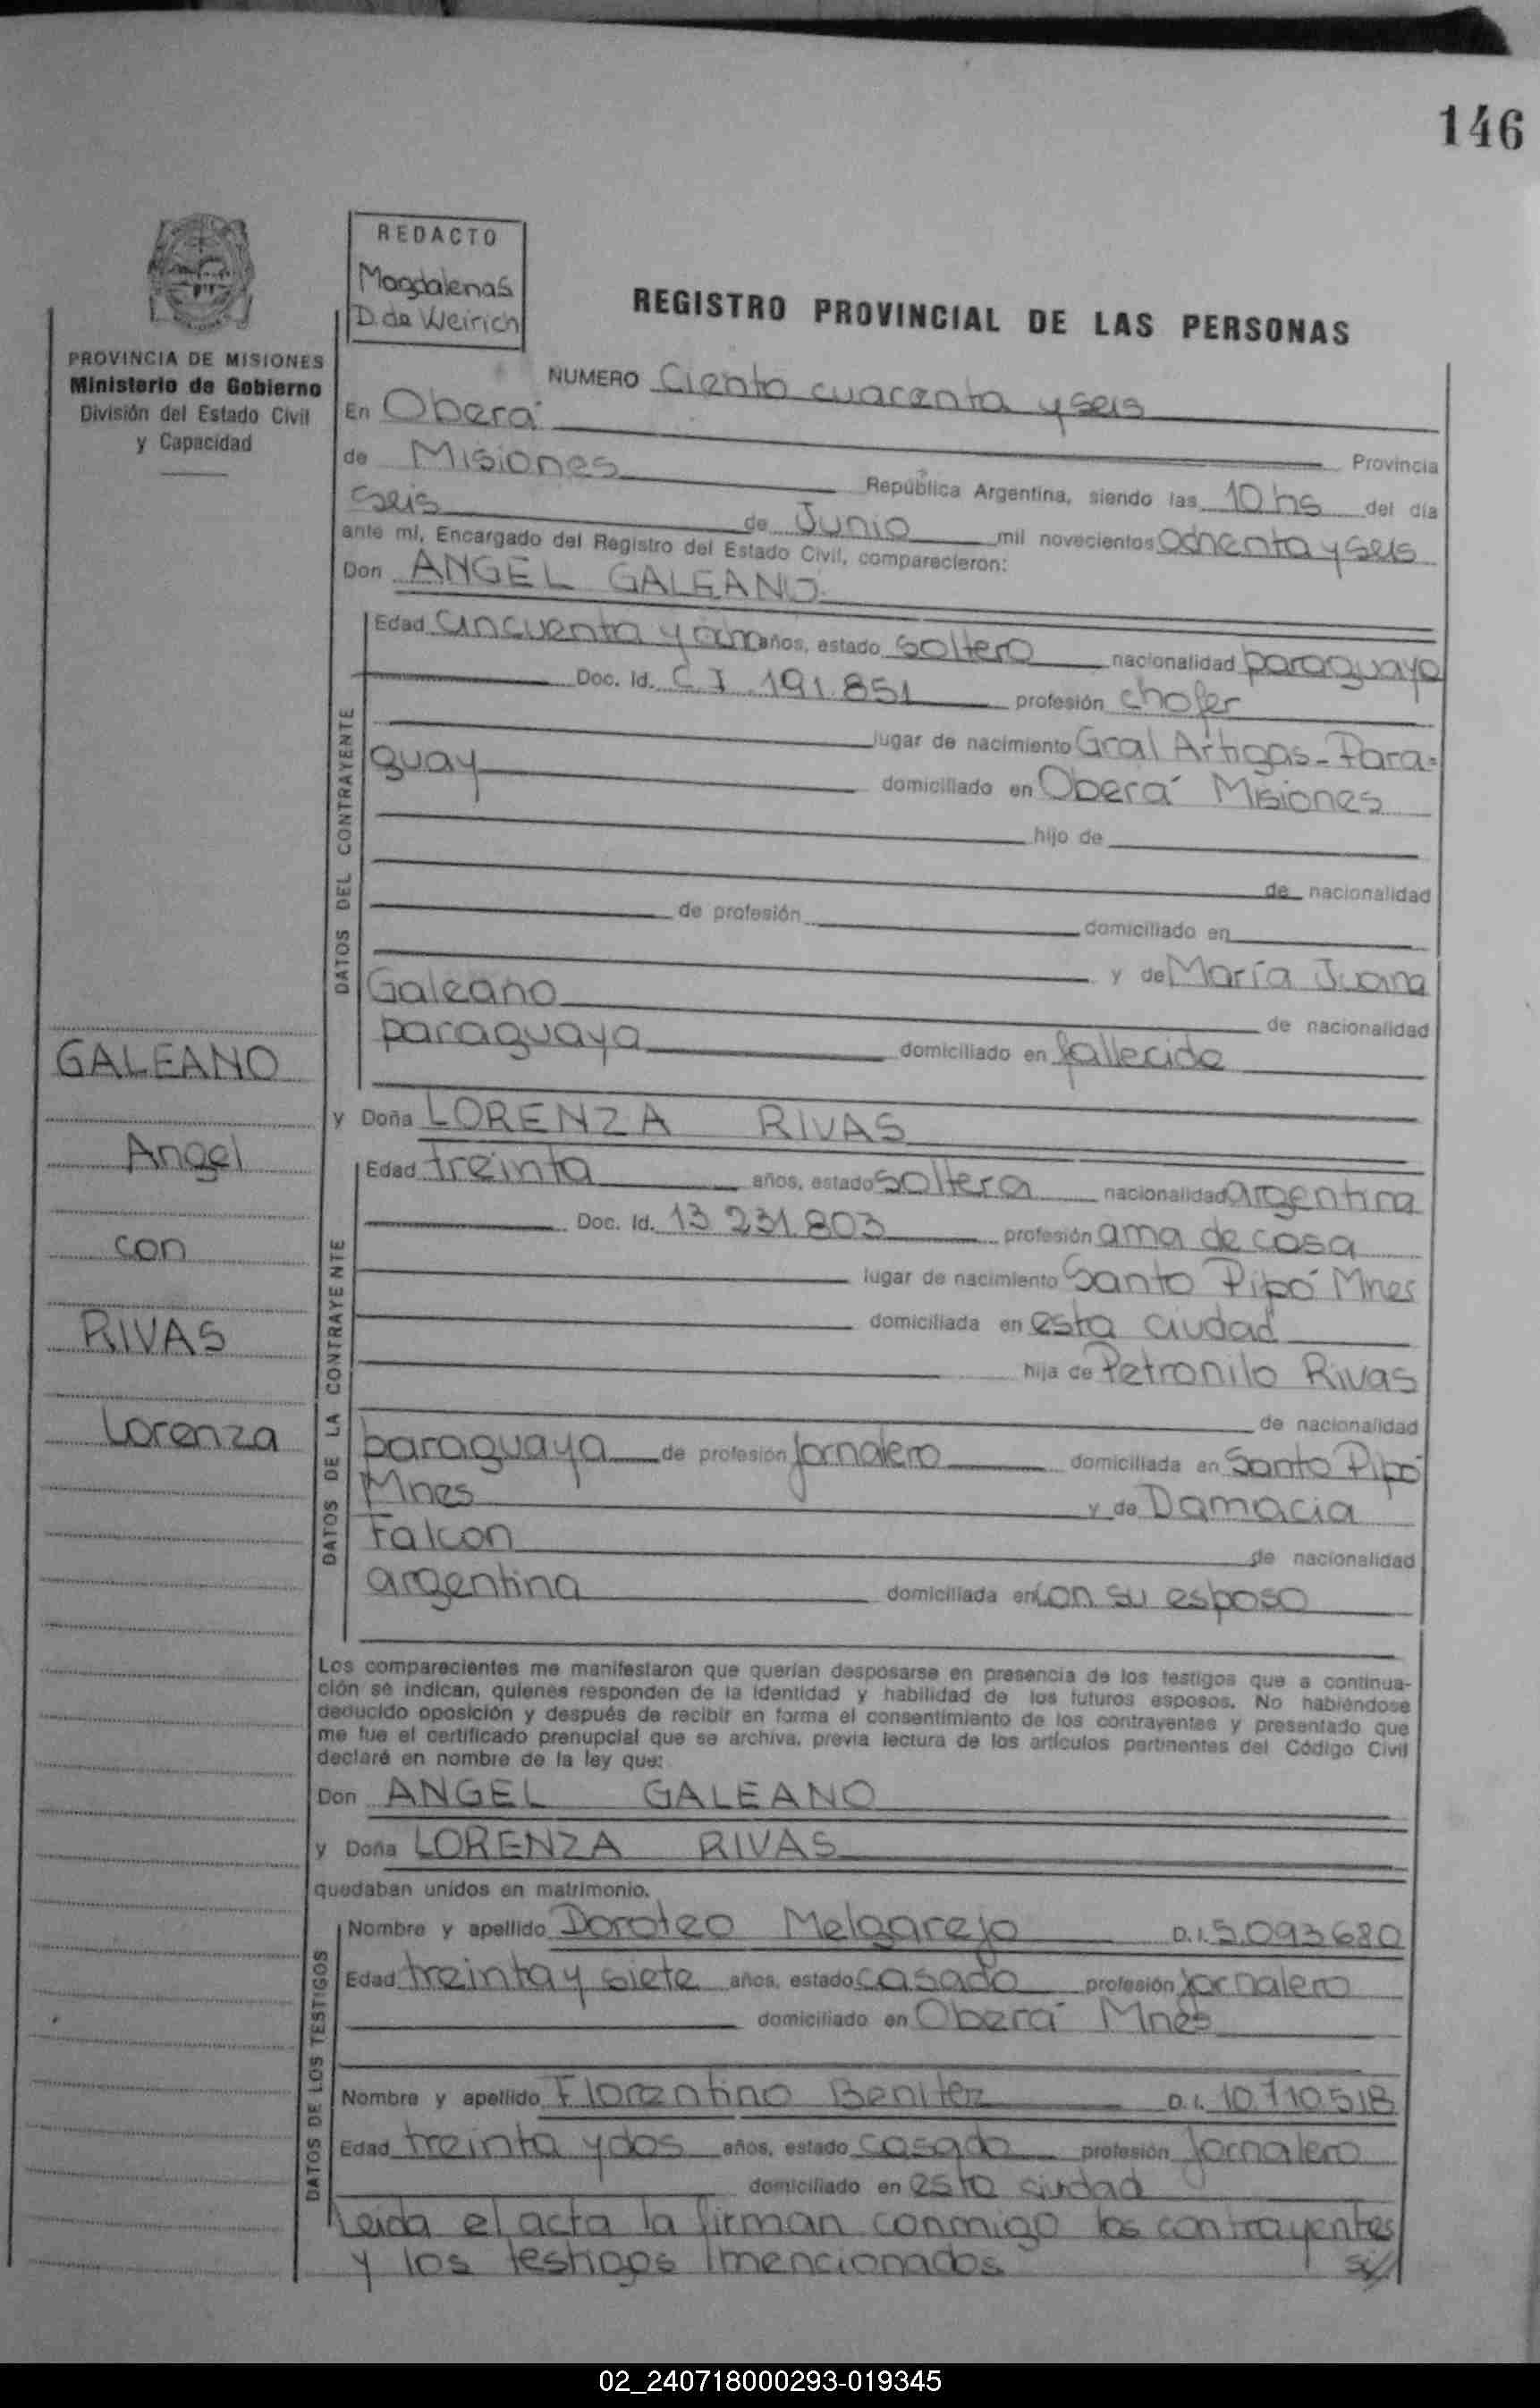 146
REDACTO
Magdalena S.
D. de Weirich
REGISTRO PROVINCIAL DE LAS PERSONAS
PROVINCIA DE MISIONES
Ministerio de Gobierno
División del Estado Civil
y Capacidad
NUMERO Ciento cuarenta y seis
En Oberá
Provincia
de Misiones República Argentina, siendo las 10 hs del día
seis de Junio mil novecientos ochenta y seis
ante mí, Encargado del Registro del Estado Civil, comparecieron:
Don ANGEL GALEANO
DATOS DEL CONTRAYENTE
Edad cincuenta y ocho años, estado soltero nacionalidad paraguaya
Doc. Id. C I 191.851 profesión chofer
lugar de nacimiento Gral Artigas - Para=
guay domiciliado en Oberá Misiones
hijo de
de nacionalidad
de profesión domiciliado en
y de María Juana
Galeano de nacionalidad
paraguaya domiciliado en fallecida
y Doña LORENZA RIVAS
DATOS DE LA CONTRAYENTE
Edad treinta años, estado soltera nacionalidad argentina
Doc. Id. 13 231.803 profesión ama de casa
lugar de nacimiento Santo Pipó Mnes
domiciliada en esta ciudad
hija de Petronilo Rivas
de nacionalidad
paraguaya de profesión jornalero domiciliada en Santo Pipó
Mnes y de Damacia
Falcon de nacionalidad
argentina domiciliada en con su esposo
GALEANO
Angel
con
RIVAS
Lorenza
Los comparecientes me manifestaron que querían desposarse en presencia de los testigos que a continua-
ción se indican, quienes responden de la identidad y habilidad de los futuros esposos. No habiéndose
deducido oposición y después de recibir en forma el consentimiento de los contrayentes y presentado que
me fue el certificado prenupcial que se archiva, previa lectura de los artículos pertinentes del Código Civil
declaré en nombre de la ley que:
Don ANGEL GALEANO
y Doña LORENZA RIVAS
quedaban unidos en matrimonio.
DATOS DE LOS TESTIGOS
Nombre y apellido Doroteo Melgarejo D.I. 5.093680
Edad treinta y siete años, estado casado profesión jornalero
domiciliado en Oberá Mnes
Nombre y apellido Florentino Benitez D.I. 10.710.518
Edad treinta y dos años, estado casado profesión jornalero
domiciliado en esta ciudad
Leida el acta la firman conmigo los contrayentes
y los testigos mencionados
02_240718000293-019345